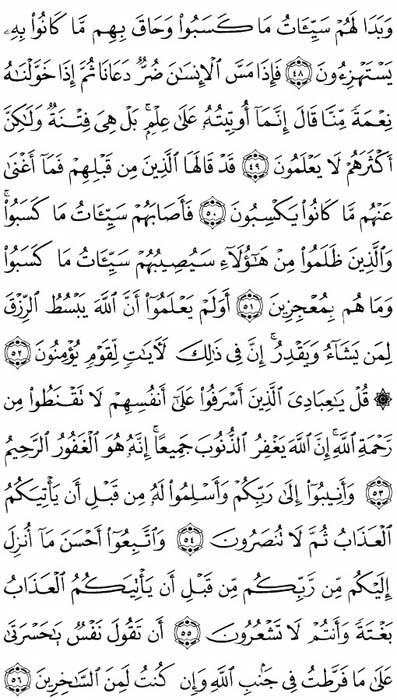 وَبَدَا لَهُمْ سَيِّـَٔاتُ مَا كَسَبُوا۟ وَحَاقَ بِهِم مَّا كَانُوا۟ بِهِۦ
يَسْتَهْزِءُونَ ٤٨ فَإِذَا مَسَّ ٱلْإِنسَـٰنَ ضُرٌّ دَعَانَا ثُمَّ إِذَا خَوَّلْنَـٰهُ
نِعْمَةً مِّنَّا قَالَ إِنَّمَآ أُوتِيتُهُۥ عَلَىٰ عِلْمٍۭ ۚ بَلْ هِىَ فِتْنَةٌ وَلَـٰكِنَّ
أَكْثَرَهُمْ لَا يَعْلَمُونَ ٤٩ قَدْ قَالَهَا ٱلَّذِينَ مِن قَبْلِهِمْ فَمَآ أَغْنَىٰ
عَنْهُم مَّا كَانُوا۟ يَكْسِبُونَ ٥٠ فَأَصَابَهُمْ سَيِّـَٔاتُ مَا كَسَبُوا۟ ۚ
وَٱلَّذِينَ ظَلَمُوا۟ مِنْ هَـٰٓؤُلَآءِ سَيُصِيبُهُمْ سَيِّـَٔاتُ مَا كَسَبُوا۟
وَمَا هُم بِمُعْجِزِينَ ٥١ أَوَلَمْ يَعْلَمُوٓا۟ أَنَّ ٱللَّهَ يَبْسُطُ ٱلرِّزْقَ
لِمَن يَشَآءُ وَيَقْدِرُ ۚ إِنَّ فِى ذَٰلِكَ لَـَٔايَـٰتٍ لِّقَوْمٍ يُؤْمِنُونَ ٥٢
۞ قُلْ يَـٰعِبَادِىَ ٱلَّذِينَ أَسْرَفُوا۟ عَلَىٰٓ أَنفُسِهِمْ لَا تَقْنَطُوا۟ مِن
رَّحْمَةِ ٱللَّهِ ۚ إِنَّ ٱللَّهَ يَغْفِرُ ٱلذُّنُوبَ جَمِيعًا ۚ إِنَّهُۥ هُوَ ٱلْغَفُورُ ٱلرَّحِيمُ
٥٣ وَأَنِيبُوٓا۟ إِلَىٰ رَبِّكُمْ وَأَسْلِمُوا۟ لَهُۥ مِن قَبْلِ أَن يَأْتِيَكُمُ
ٱلْعَذَابُ ثُمَّ لَا تُنصَرُونَ ٥٤ وَٱتَّبِعُوٓا۟ أَحْسَنَ مَآ أُنزِلَ
إِلَيْكُم مِّن رَّبِّكُم مِّن قَبْلِ أَن يَأْتِيَكُمُ ٱلْعَذَابُ
بَغْتَةً وَأَنتُمْ لَا تَشْعُرُونَ ٥٥ أَن تَقُولَ نَفْسٌ يَـٰحَسْرَتَىٰ
عَلَىٰ مَا فَرَّطتُ فِى جَنۢبِ ٱللَّهِ وَإِن كُنتُ لَمِنَ ٱلسَّـٰخِرِينَ ٥٦